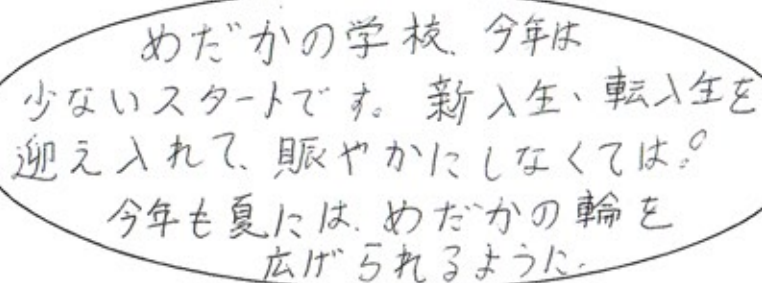 めだかの学校、今年は
少ないスタートです。新入生、転入生を
迎え入れて、賑やかにしなくては。
今年も夏には、めだかの輪を
広げられるように.